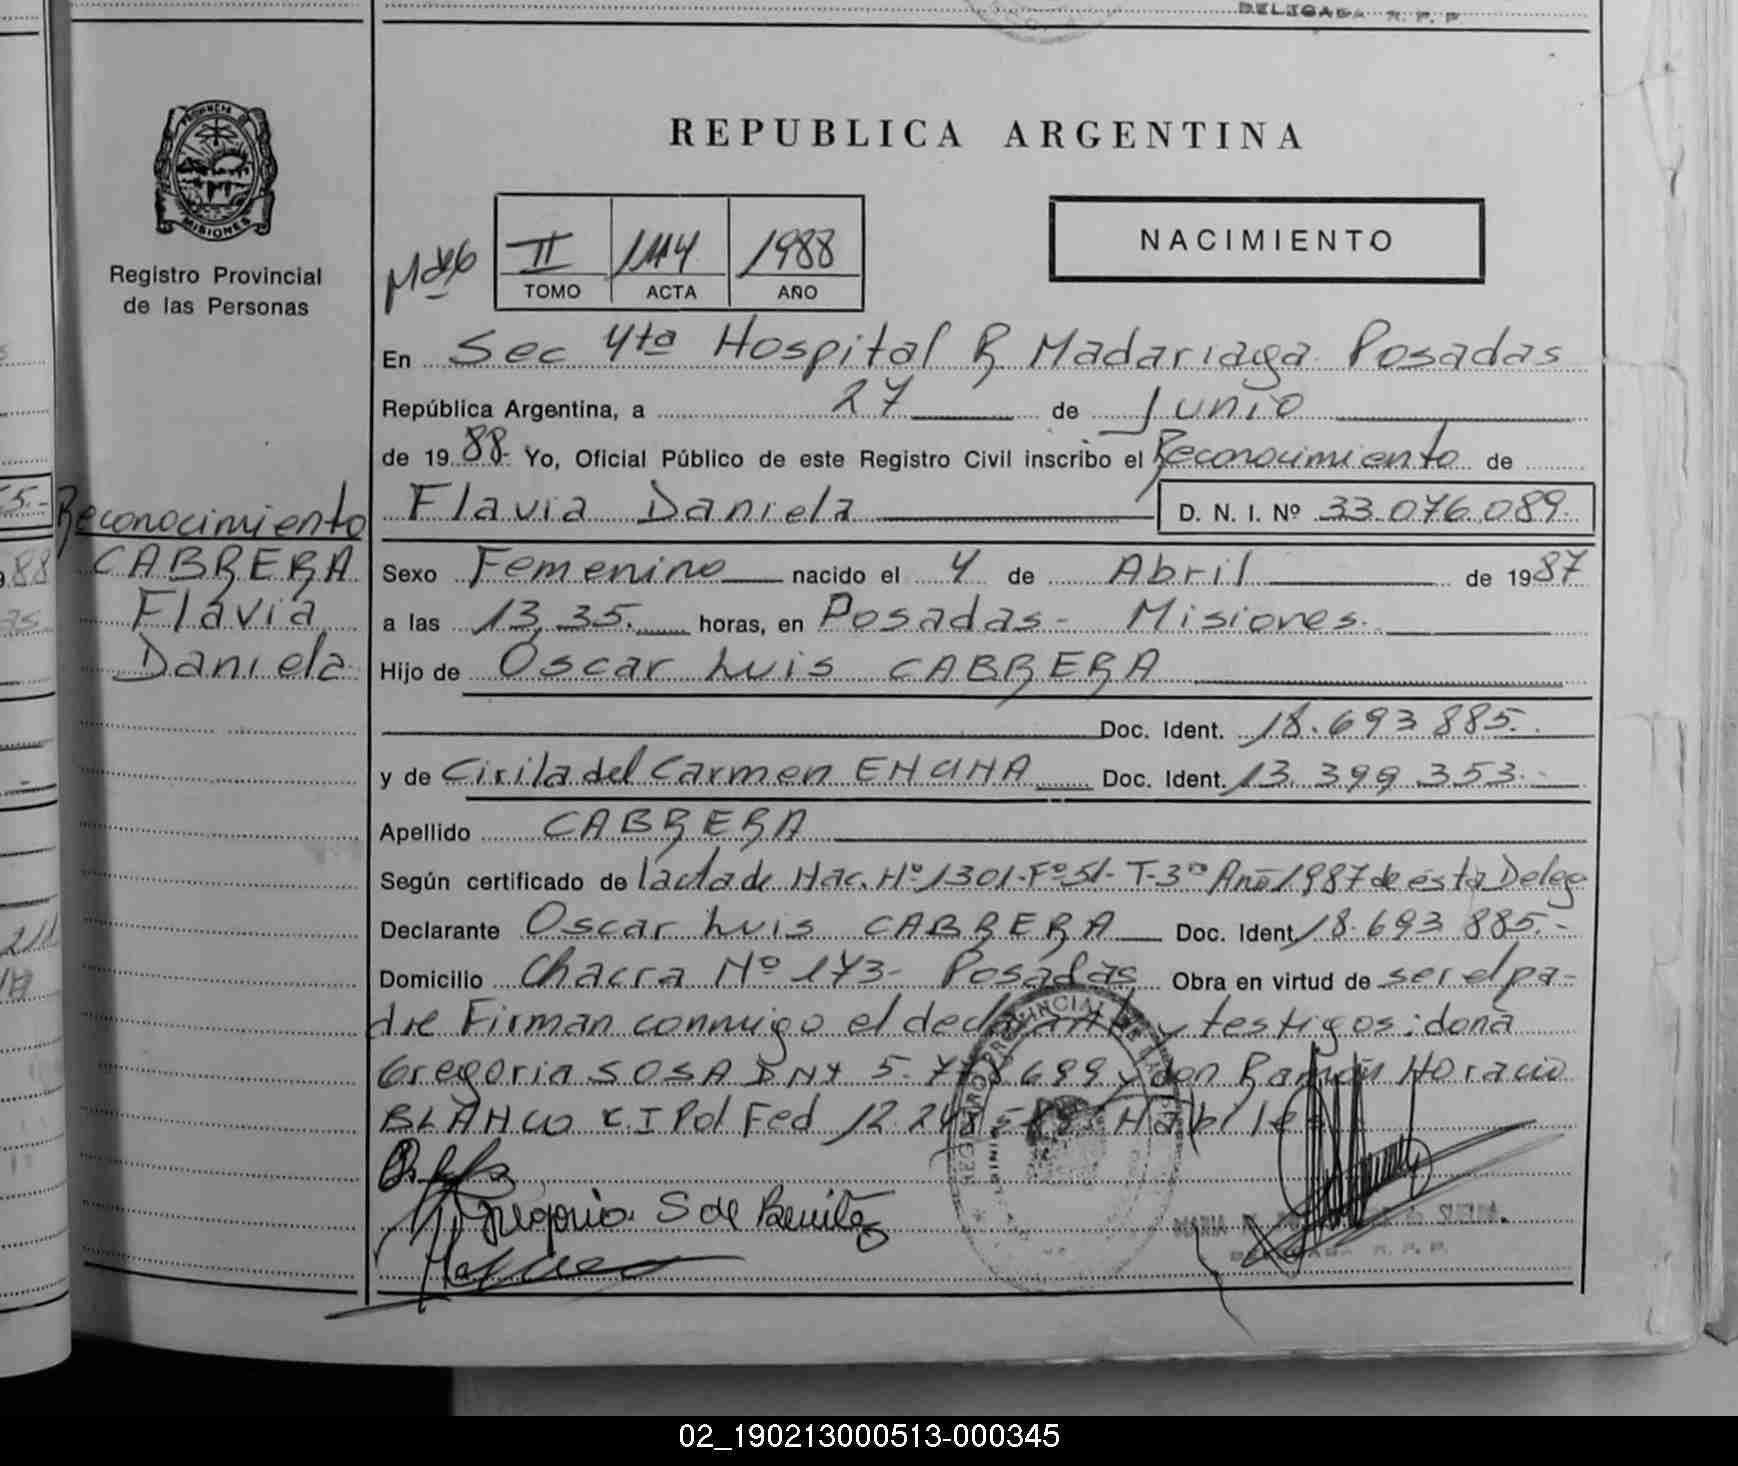 DELEGADA R. P. P.
REPUBLICA ARGENTINA
PROVINCIA DE
MISIONES
Registro Provincial
de las Personas
II 1114 1988
TOMO ACTA AÑO
NACIMIENTO
En Sec 4ta Hospital R Madariaga Posadas
República Argentina, a 27 de Junio
de 1988- Yo, Oficial Público de este Registro Civil inscribo el Reconocimiento de
Flavia Daniela D. N. I. Nº 33.076.089.
Reconocimiento
CABRERA
Flavia
Daniela
Sexo Femenino nacido el 4 de Abril de 1987
a las 13,35. horas, en Posadas- Misiones.
Hijo de Oscar Luis CABRERA
Doc. Ident. 18.693.885.
y de Cirila del Carmen ENCINA Doc. Ident. 13.399.353.-
Apellido CABRERA
Según certificado de l'acta de Nac. Nº 1301-Fº51- T-3ro Año 1987 de ésta Deleg
Declarante Oscar Luis CABRERA Doc. Ident 18.693.885.-
Domicilio Chacra Nº 143- Posadas Obra en virtud de ser el pa-
dre Firman conmigo el declarante y testigos: doña
Gregoria SOSA DNI 5. 699 y don Ramón Horacio
BLANCO C I Pol Fed 12.248 Habiles
Gregoria S de Benitez
DELEGADA R. P. P.
02_190213000513-000345